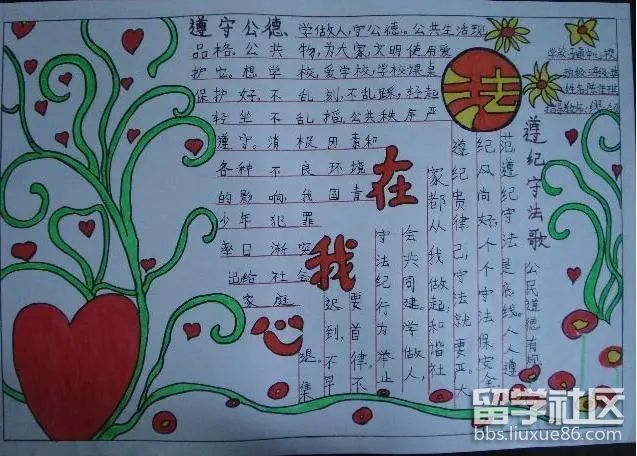 遵守公德
学做人,守公德,公共生活现
品格.公共物,为大家,文明使用爱
护它.想学校,爱学校,学校课桌
保护好.不乱刻,不乱踩,轻起
轻坐不乱搞,公共秩序严
遵守.消极因素和
各种不良环境
的影响,我国青
少年犯罪
率日渐突
出给社会
家庭
法
在
我
心
遵纪守法歌
公民道德有规
范遵纪守法是底线。人人遵
纪风尚好,个个守法保安全
遵纪贵律己,守法就要严大
家都从我做起,和谐社
会共同建学做人,
守法纪行为举止
要首律。不
迟到,早
退.集
留学社区
bbs.liuxue86.com